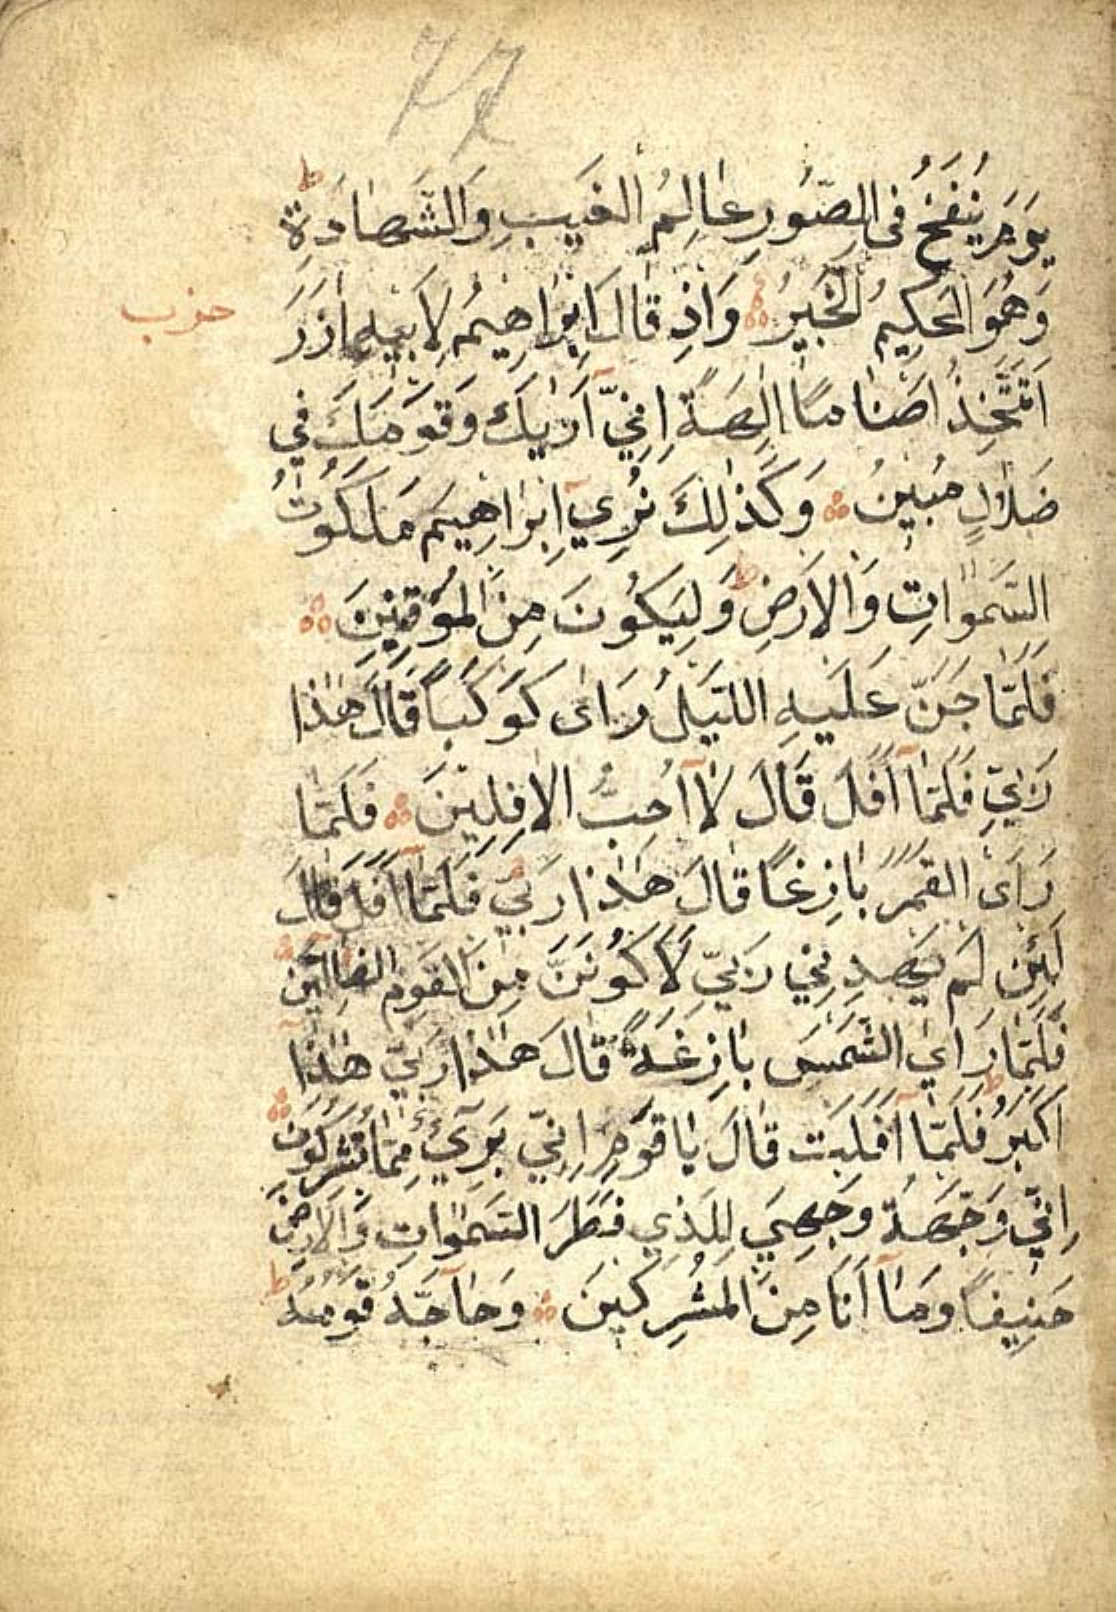 77
يَوْمَ يُنْفَخُ فِى الصُّورِ عَالِمُ الْغَيْبِ وَالشَّهَادَةِ ط
وَهُوَ الْحَكِيمُ الْخَبِيرُ وَاِذْ قَالَ اِبْرَاهِيمُ لِاَبِيهِ اٰزَرَ
حزب
اَتَتَّخِذُ اَصْنَامًا اٰلِهَةً اِنِّيٓ اَرٰيكَ وَقَوْمَكَ فِي
ضَلَالٍ مُبِينٍ وَكَذٰلِكَ نُرِيٓ اِبْرَاهِيمَ مَلَكُوتَ
السَّمٰوَاتِ وَالْاَرْضِ ط وَلِيَكُونَ مِنَ الْمُوقِنِينَ
فَلَمَّا جَنَّ عَلَيْهِ الَّيْلُ رَاٰى كَوْكَبًا قَالَ هٰذَا
رَبِّي فَلَمَّآ اَفَلَ قَالَ لَآ اُحِبُّ الْاٰفِلِينَ فَلَمَّا
رَاَى الْقَمَرَ بَازِغًا قَالَ هٰذَا رَبِّي فَلَمَّآ اَفَلَ قَالَ
لَئِنْ لَمْ يَهْدِنِي رَبِّي لَاَكُونَنَّ مِنَ الْقَوْمِ الضَّالِّينَ
فَلَمَّا رَاَى الشَّمْسَ بَازِغَةً قَالَ هٰذَا رَبِّي هٰذَآ
اَكْبَرُ ط فَلَمَّآ اَفَلَتْ قَالَ يَا قَوْمِ اِنِّي بَرِيٓءٌ مِمَّا تُشْرِكُونَ
اِنِّي وَجَّهْتُ وَجْهِيَ لِلَّذِي فَطَرَ السَّمٰوَاتِ وَالْاَرْضَ
حَنِيفًا وَمَآ اَنَا مِنَ الْمُشْرِكِينَ وَحَآجَّهُ قَوْمُهُ ط